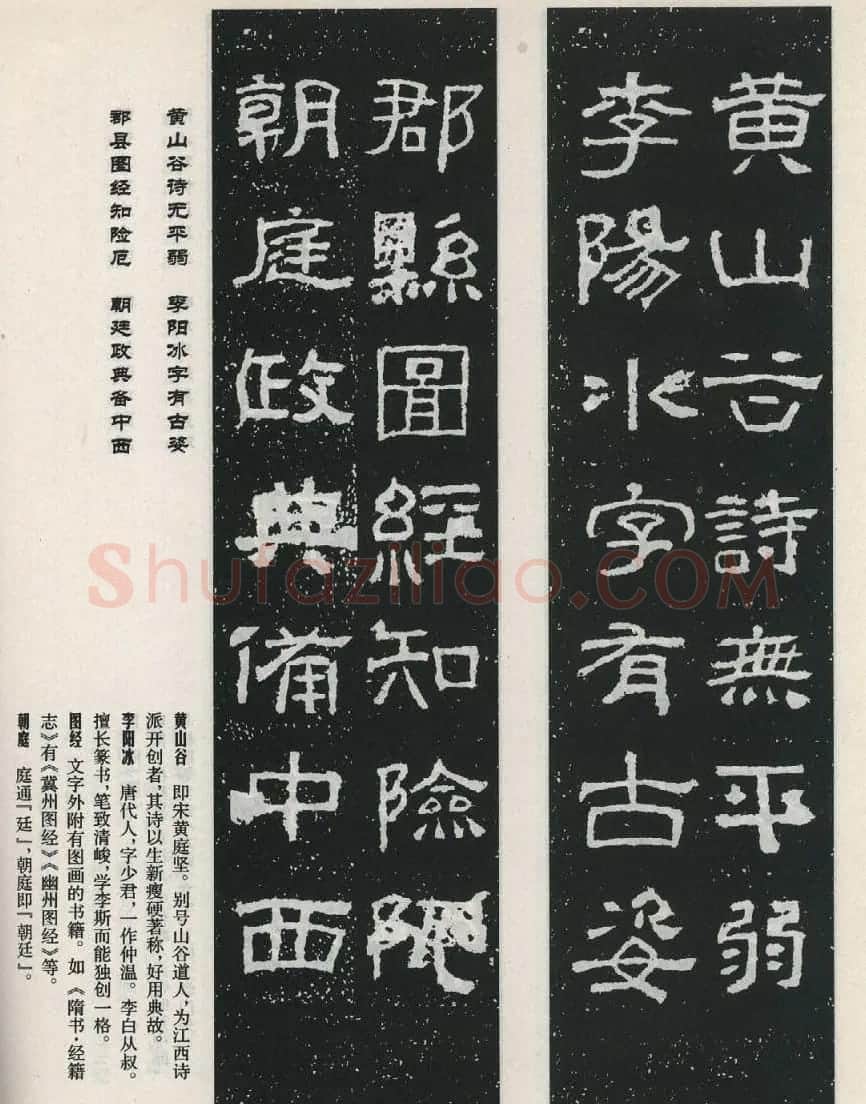 黄山谷詩無平弱
李陽冰字有古姿
郡縣圖經知險阨
朝庭政典備中西
黄山谷诗无平弱 李阳冰字有古姿
郡县图经知险厄 朝廷政典备中西
黄山谷 即宋黄庭坚。别号山谷道人，为江西诗
派开创者，其诗以生新瘦硬著称，好用典故。
李阳冰 唐代人，字少君，一作仲温。李白从叔。
擅长篆书，笔致清峻，学李斯而能独创一格。
图经 文字外附有图画的书籍。如《隋书·经籍
志》有《冀州图经》《幽州图经》等。
朝庭 庭通『廷』，朝庭即『朝廷』。
Shufaziliao.COM